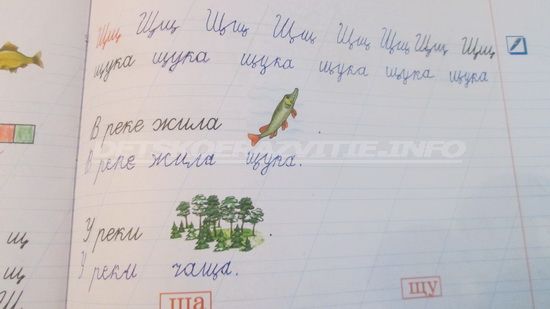 Щщ Щщ Щщ Щщ Щщ Щщ Щщ Щщ
щука щука щука щука щука щука
В реке жила .
В реке жила щука.
У реки .
У реки чаща.
ща щу
щ
щ
DETSKOERAZVITIE.INFO